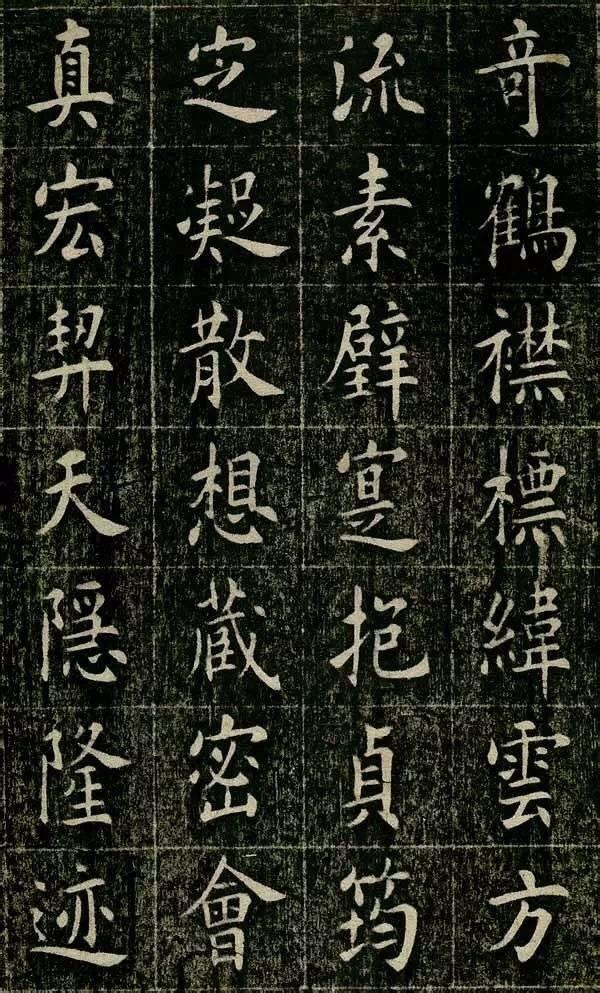 竒鶴襟標緯雲方
流素璧寔抱貞筠
㝎凝散想蔵密會
真宏契天隠隆迹